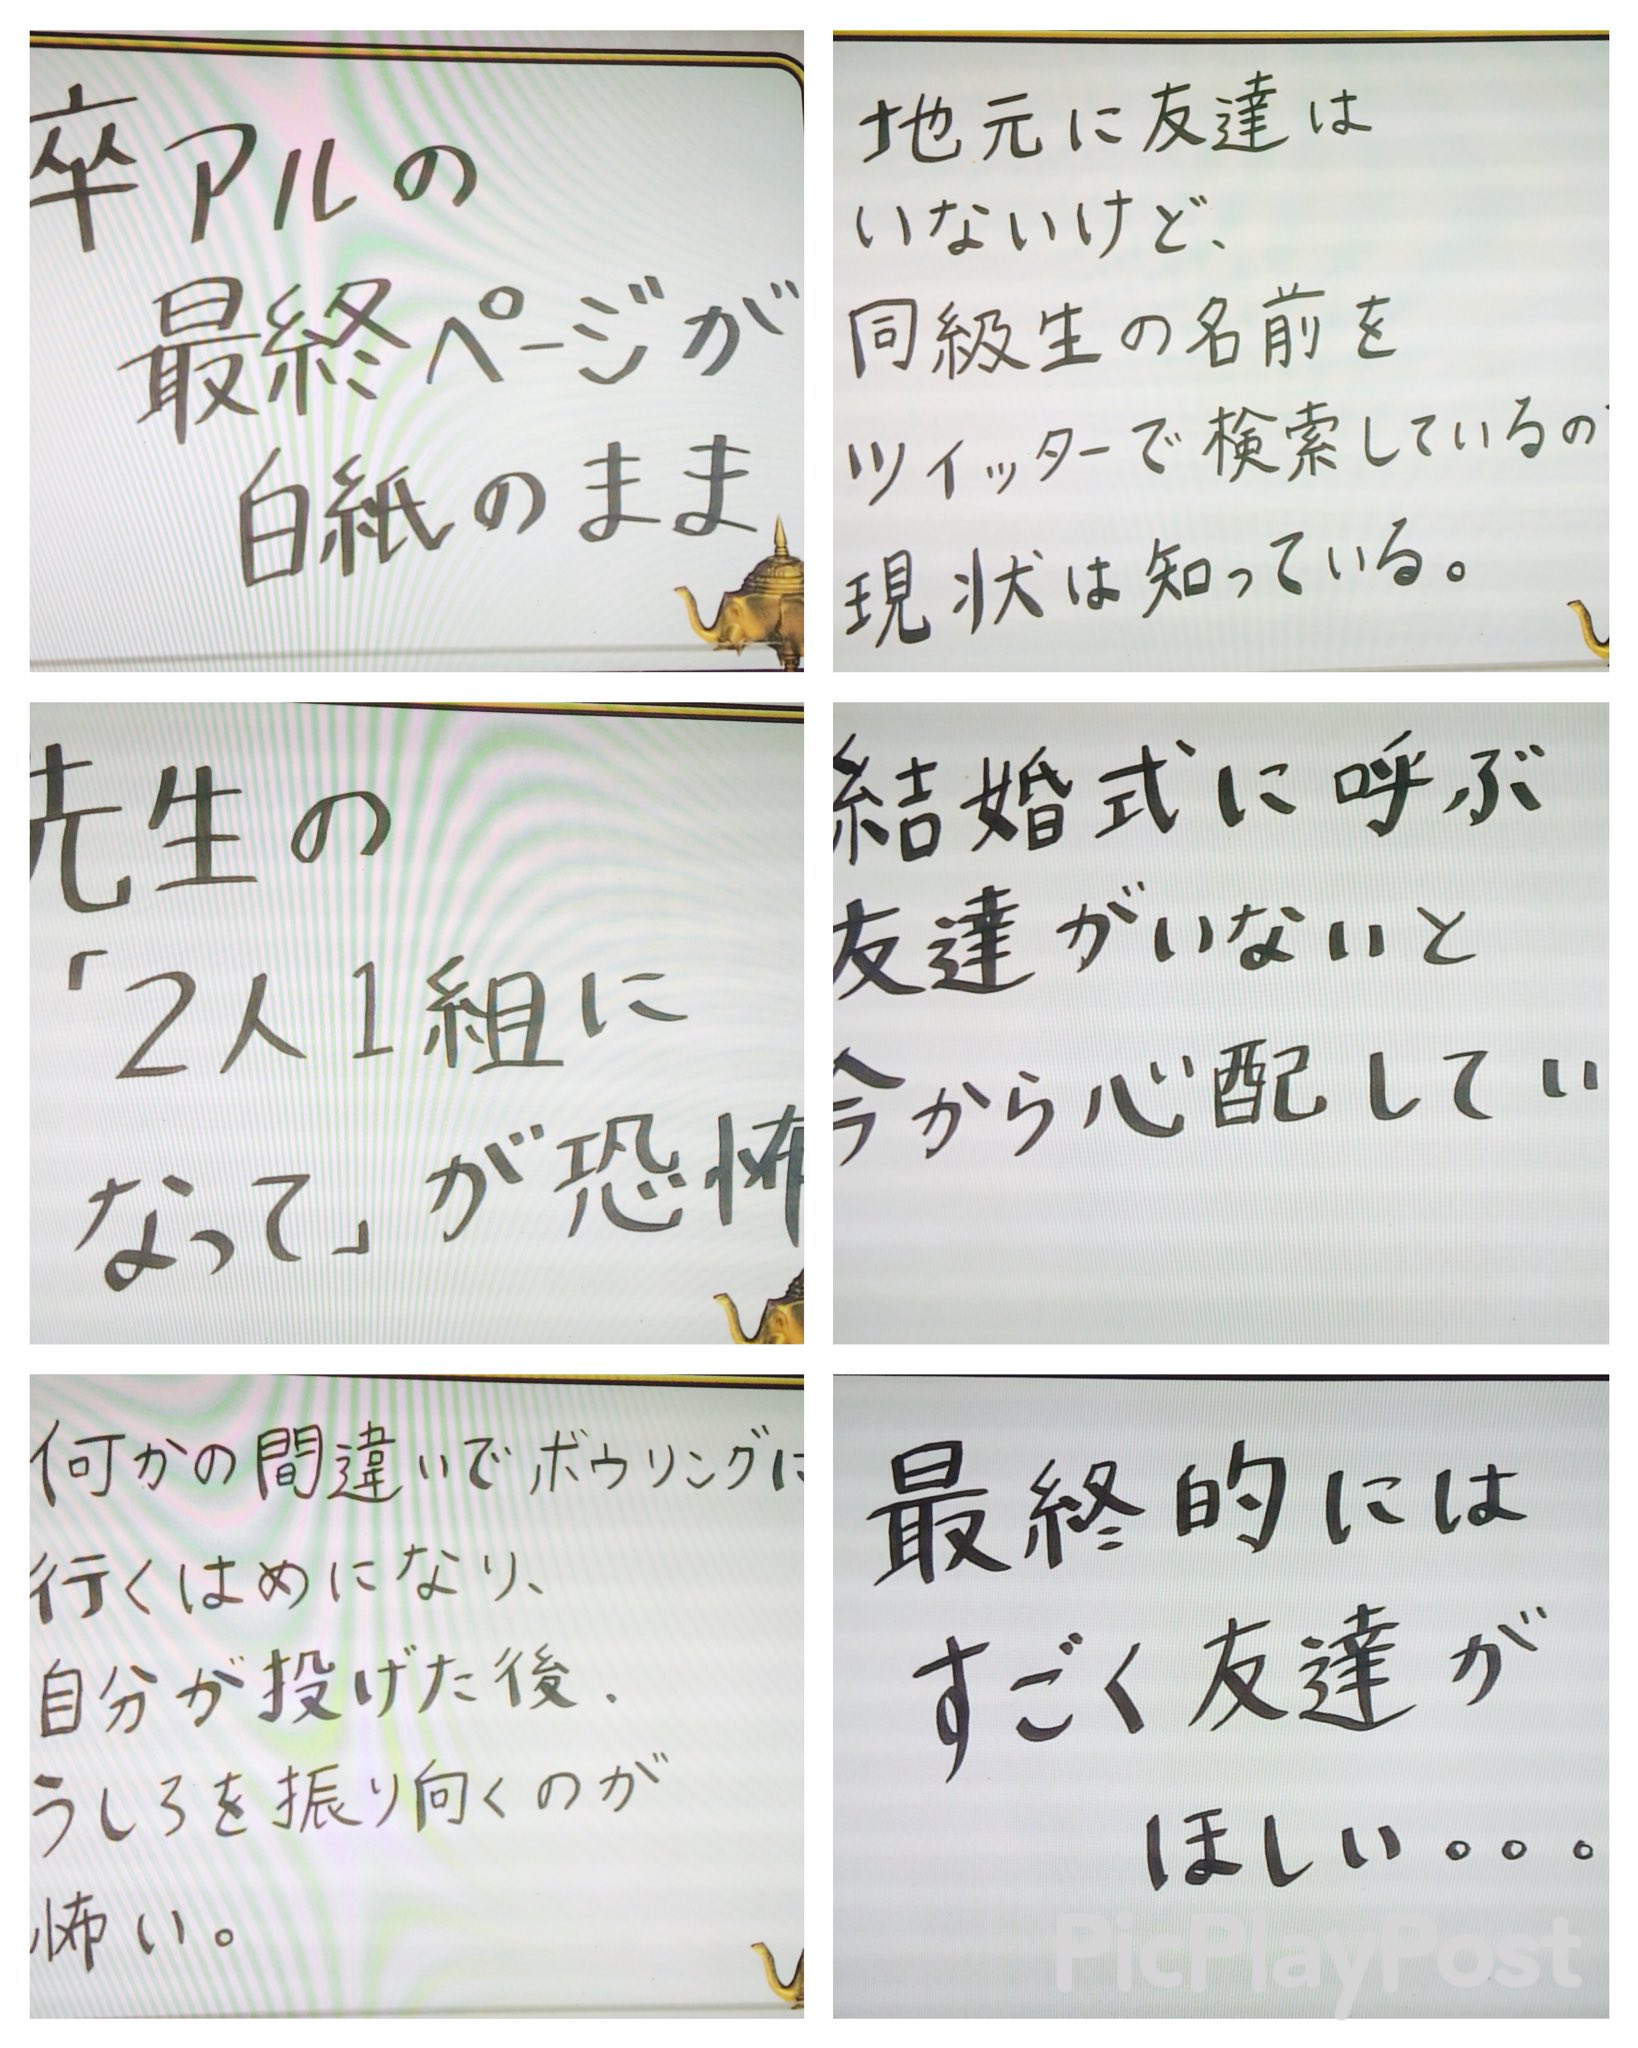 卒アルの
最終ページが
白紙のまま
地元に友達は
いないけど、
同級生の名前を
ツイッターで検索しているの
現状は知っている。
先生の
「2人1組に
なって」が恐怖
結婚式に呼ぶ
友達がいないと
今から心配してい
何かの間違いでボウリングに
行くはめになり、
自分が投げた後、
うしろを振り向くのが
怖い。
最終的には
すごく友達が
ほしい。。。
PicPlayPost